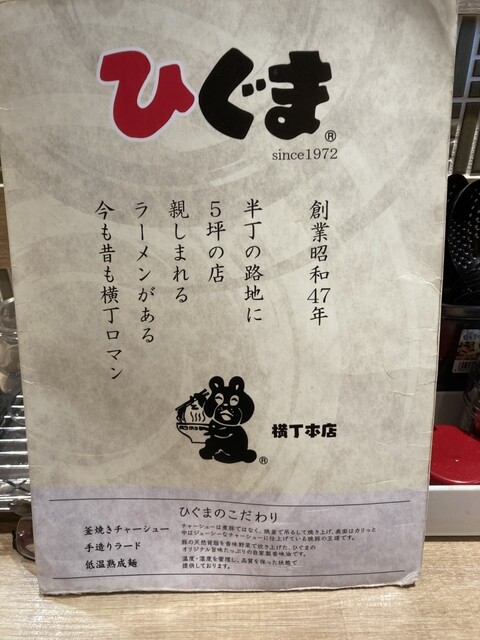 ひぐま®
since1972
創業昭和47年
半丁の路地に
5坪の店
親しまれる
ラーメンがある
今も昔も横丁ロマン
横丁本店
®
ひぐまのこだわり
釜焼きチャーシュー
チャーシューは煮豚ではなく、焼釜で吊るして焼き上げ、表面はカリっと
中はジューシーなチャーシューに仕上げている焼豚の王道です。
手造りラード
豚の天然背脂を香味野菜で炊き上げた、ひぐまの
オリジナル旨味たっぷりの自家製香味油です。
低温熟成麺
温度・湿度を管理し、品質を保った状態で
提供しております。